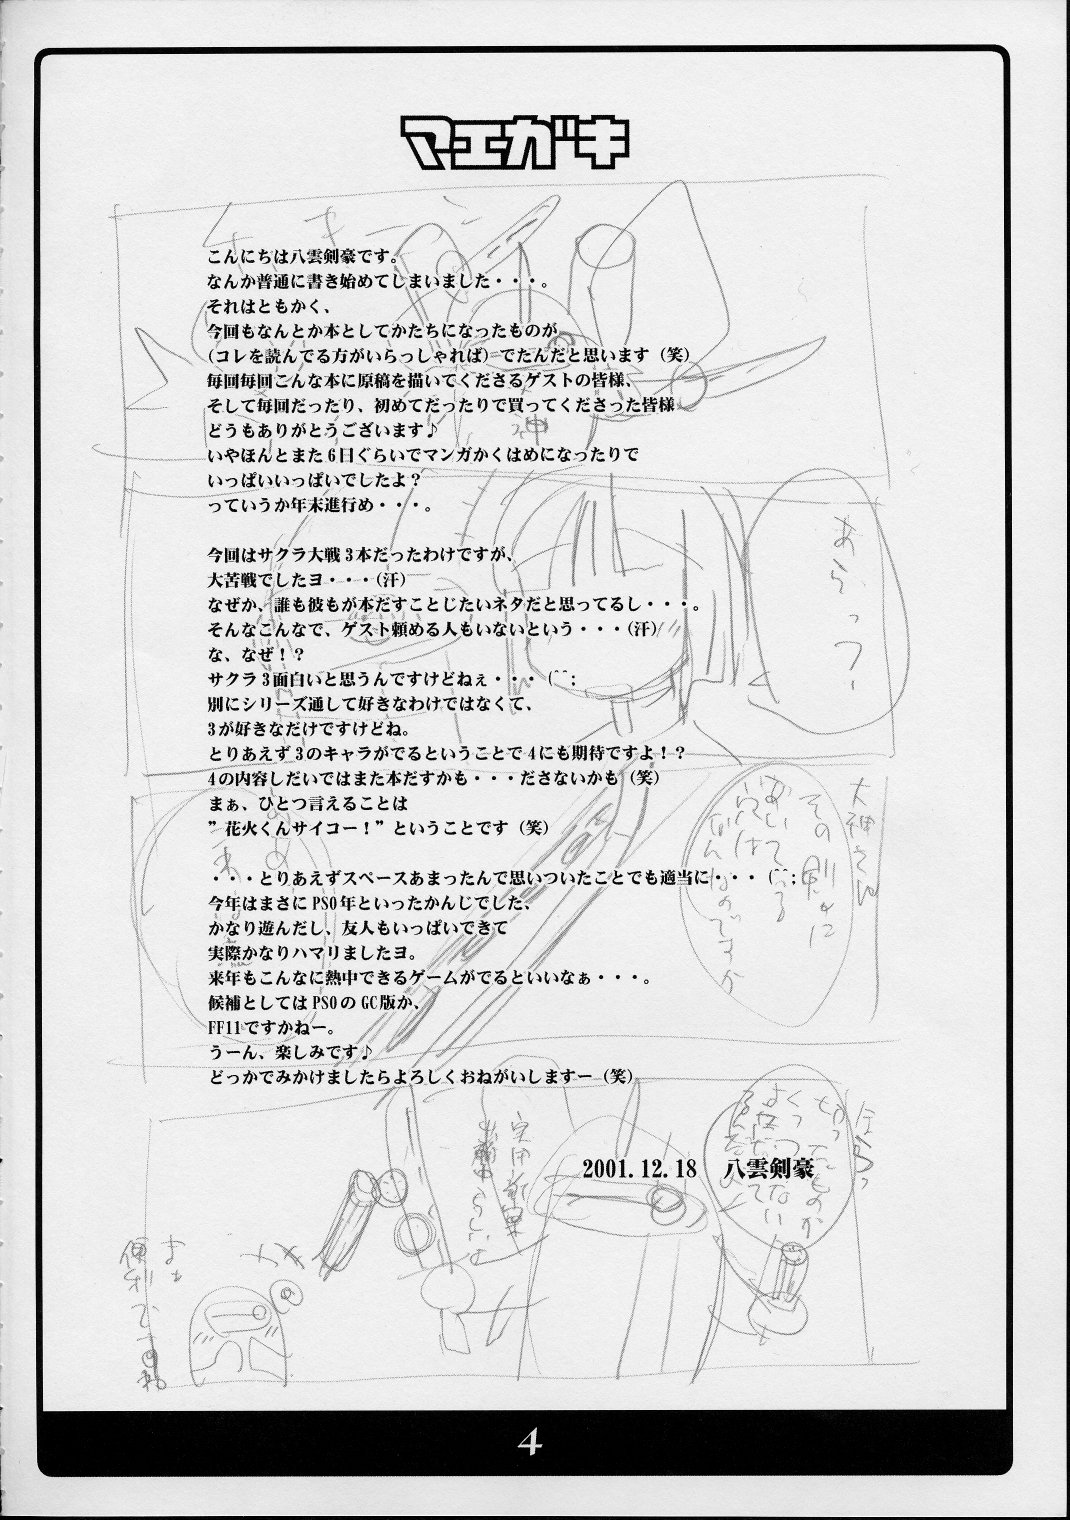 マエガキ
こんにちは八雲剣豪です。
なんか普通に書き始めてしまいました・・・。
それはともかく、
今回もなんとか本としてかたちになったものが
（コレを読んでる方がいらっしゃれば）でたんだと思います（笑）
毎回毎回こんな本に原稿を描いてくださるゲストの皆様、
そして毎回だったり、初めてだったりで買ってくださった皆様
どうもありがとうございます♪
いやほんとまた6日ぐらいでマンガかくはめになったりで
いっぱいいっぱいでしたよ？
っていうか年末進行め・・・。
今回はサクラ大戦3本だったわけですが、
大苦戦でしたヨ・・・(汗)
なぜか、誰も彼もが本だすことじたいネタだと思ってるし・・・。
そんなこんなで、ゲスト頼める人もいないという・・・(汗)
な、なぜ！？
サクラ3面白いと思うんですけどねぇ・・・(^^;
別にシリーズ通して好きなわけではなくて、
3が好きなだけですけどね。
とりあえず3のキャラがでるということで4にも期待ですよ！？
4の内容しだいではまた本だすかも・・・ださないかも（笑）
まぁ、ひとつ言えることは
”花火くんサイコー！”ということです（笑）
・・・とりあえずスペースあまったんで思いついたことでも適当に・・・(^^;
今年はまさにPSO年といったかんじでした、
かなり遊んだし、友人もいっぱいできて
実際かなりハマりましたヨ。
来年もこんなに熱中できるゲームがでるといいなぁ・・・。
候補としてはPSOのGC版か、
FF11ですかねー。
うーん、楽しみです♪
どっかでみかけましたらよろしくおねがいしますー（笑）
2001.12.18　八雲剣豪
あらっ
大神さん
その剣に
あいてる
穴は
なんなのですか
まぁ
便利ですね
4